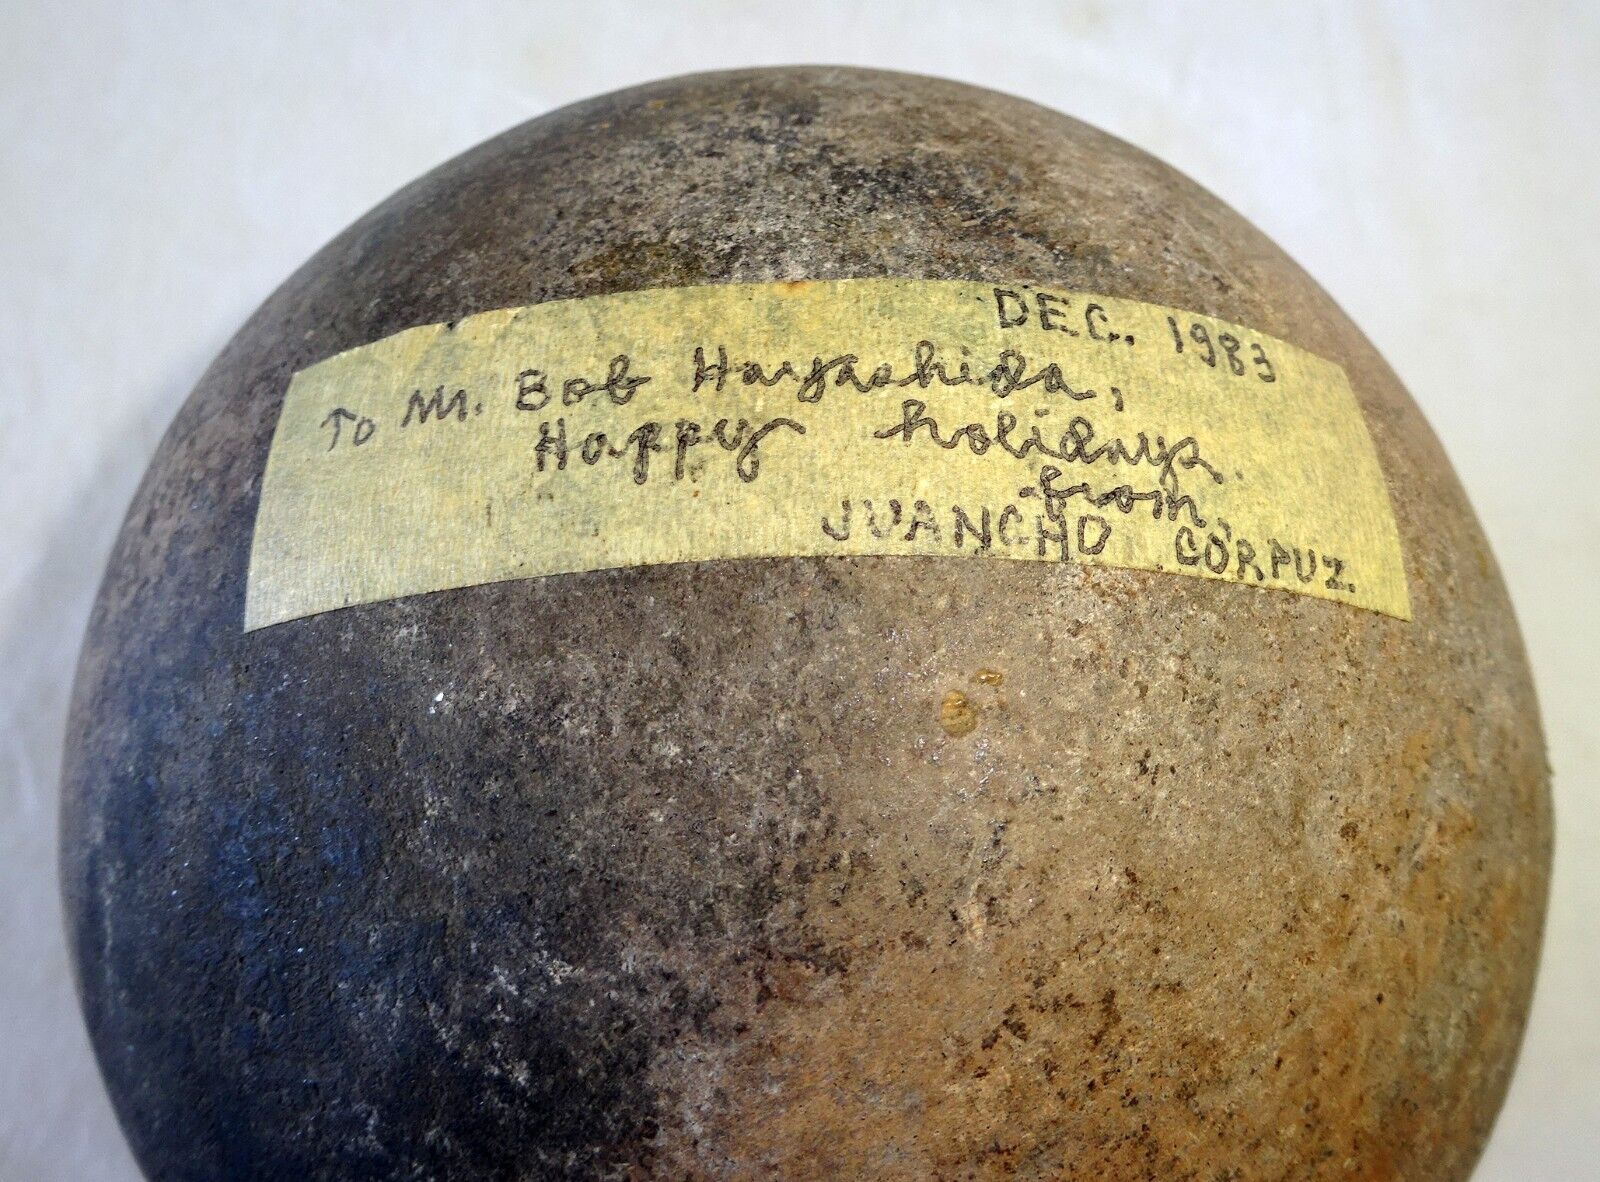 DEC. 1983
To Mr. Bob Hayashida,
Happy holidays.
from,
JUANCHO CORPUZ.